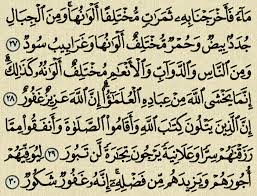 مَآءً فَأَخْرَجْنَا بِهِۦ ثَمَرَٰتٍ مُّخْتَلِفًا أَلْوَٰنُهَا ۚ وَمِنَ ٱلْجِبَالِ
جُدَدٌۢ بِيضٌ وَحُمْرٌ مُّخْتَلِفٌ أَلْوَٰنُهَا وَغَرَابِيبُ سُودٌ ٢٧
وَمِنَ ٱلنَّاسِ وَٱلدَّوَآبِّ وَٱلْأَنْعَٰمِ مُخْتَلِفٌ أَلْوَٰنُهُۥ كَذَٰلِكَ ۗ
إِنَّمَا يَخْشَى ٱللَّهَ مِنْ عِبَادِهِ ٱلْعُلَمَٰٓؤُا۟ ۗ إِنَّ ٱللَّهَ عَزِيزٌ غَفُورٌ ٢٨
إِنَّ ٱلَّذِينَ يَتْلُونَ كِتَٰبَ ٱللَّهِ وَأَقَامُوا۟ ٱلصَّلَوٰةَ وَأَنفَقُوا۟ مِمَّا
رَزَقْنَٰهُمْ سِرًّا وَعَلَانِيَةً يَرْجُونَ تِجَٰرَةً لَّن تَبُورَ ٢٩ لِيُوَفِّيَهُمْ
أُجُورَهُمْ وَيَزِيدَهُم مِّن فَضْلِهِۦٓ ۚ إِنَّهُۥ غَفُورٌ شَكُورٌ ٣٠